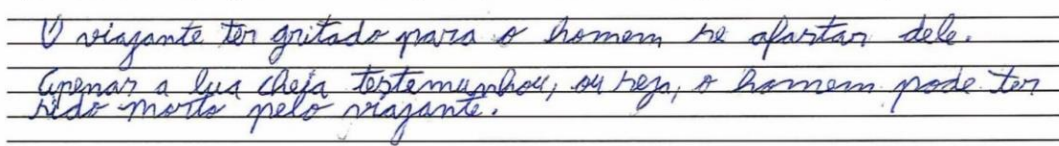 O viajante ter gritado para o homem se afastar dele.
Apenas a lua cheia testemunhou, ou seja, o homem pode ter
sido morto pelo viajante.